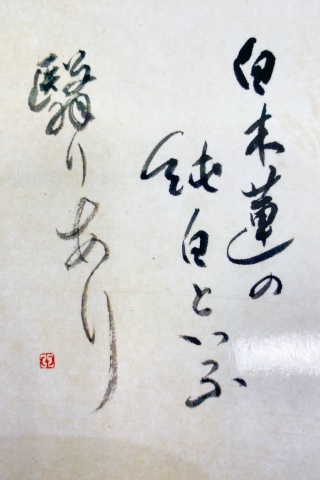 白木蓮の
純白といふ
翳りあり